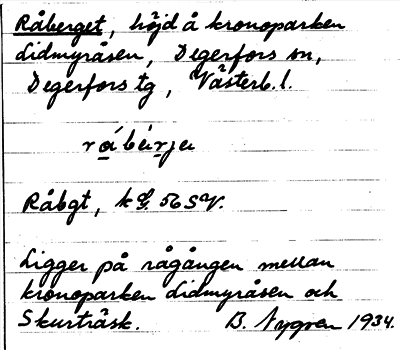 Råberget, höjd å kronoparken
Lidmyråsen, Degerfors sn,
Degerfors tg, Västerb.l.
Råbgt, k 56SV.
Ligger på rågången mellan
kronoparken Lidmyråsen och
Skurträsk. B. Nygren 1934.